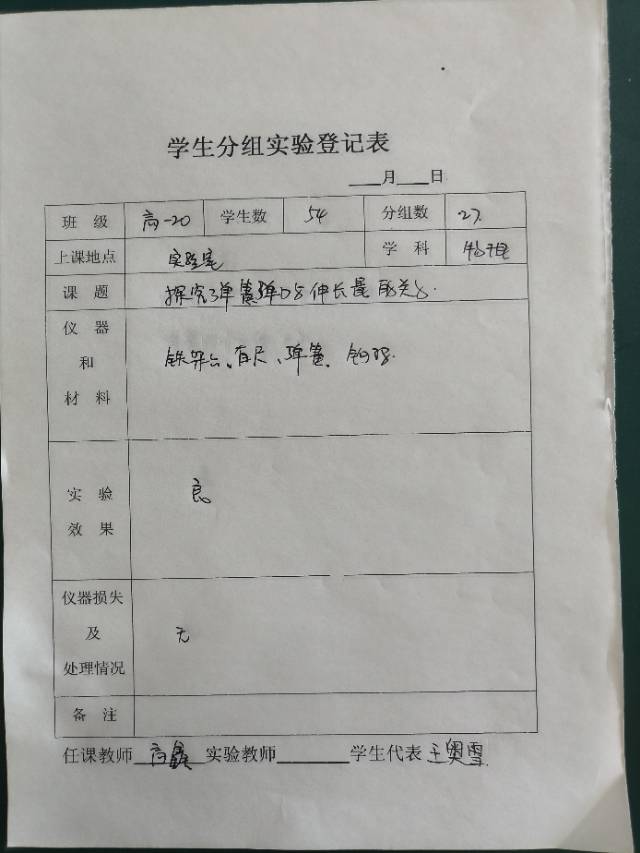 学生分组实验登记表
___月___日
班 级 高一20 学生数 54 分组数 27
上课地点 实验室 学 科 物理
课 题 探究弹簧弹力与伸长量的关系.
仪 器
和
材 料
铁架台、直尺、弹簧、钩码.
实 验
效 果
良
仪器损失
及
处理情况
无
备 注
任课教师 高鑫 实验教师______ 学生代表 王奥雪